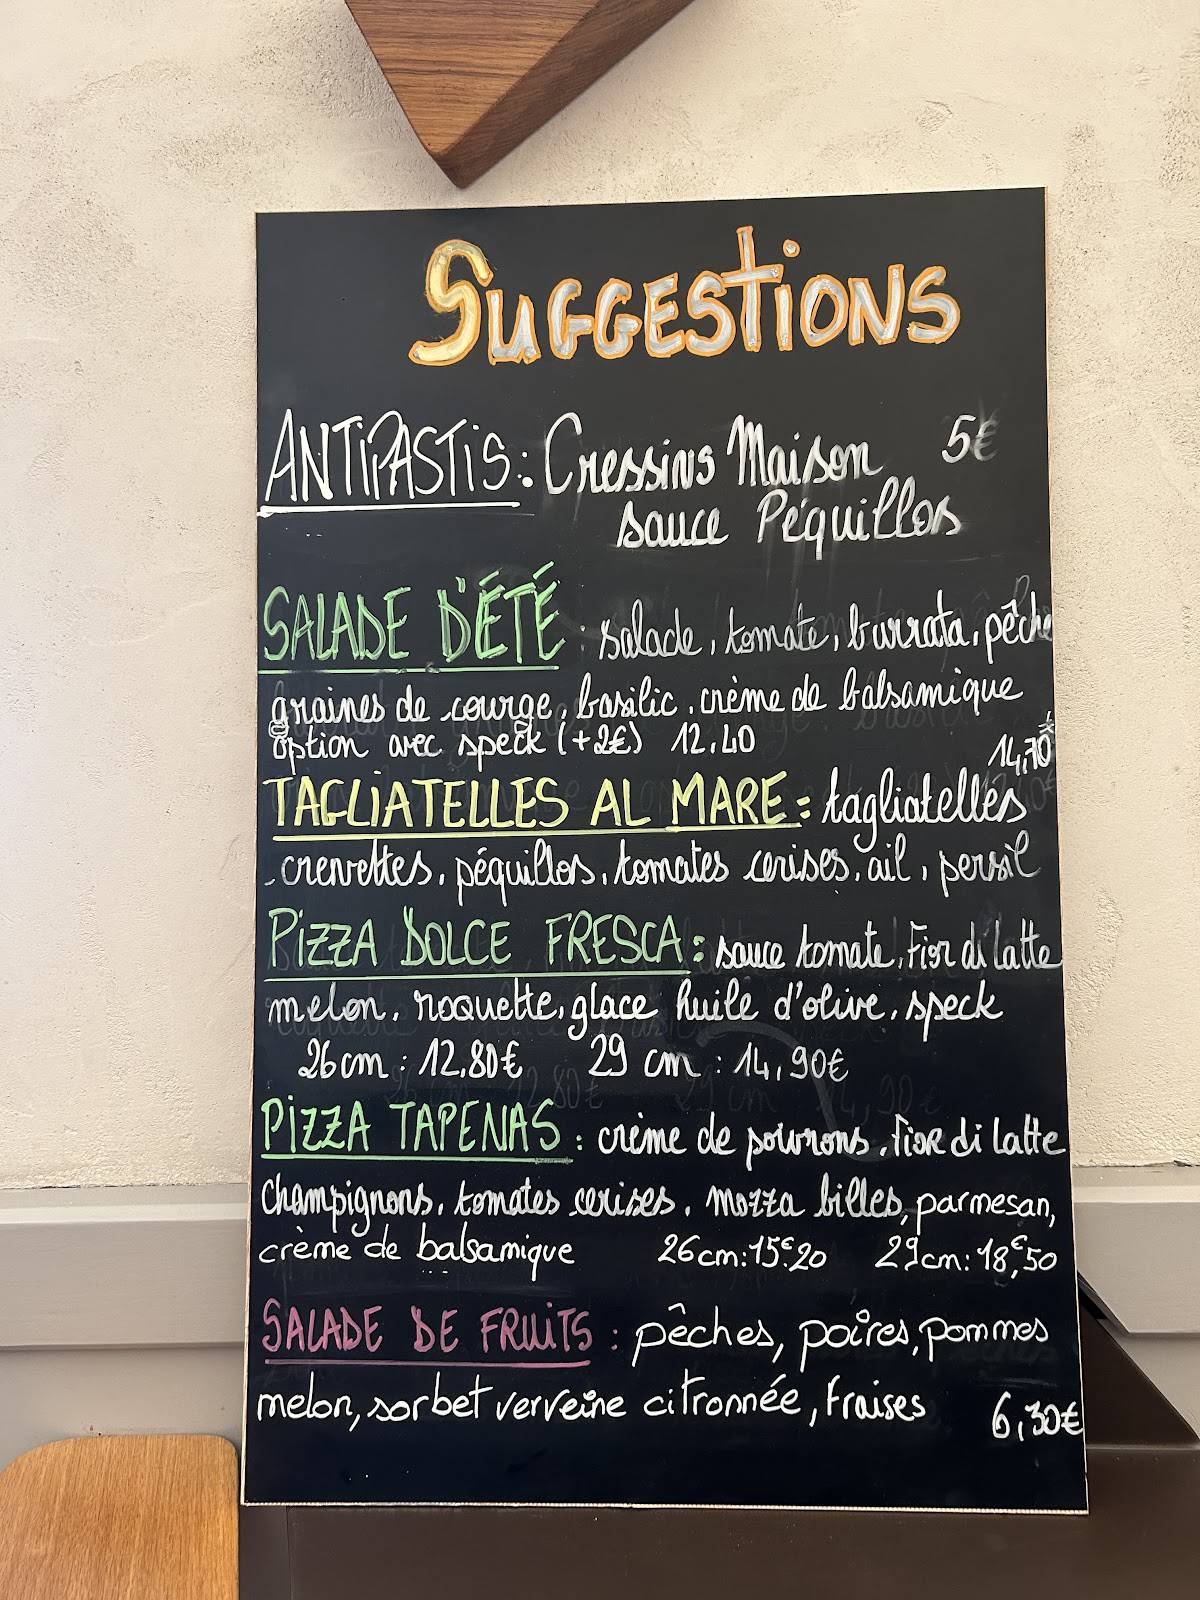 SUGGESTIONS
ANTIPASTIS: Cressins Maison 5€
sauce Péquillos
SALADE D'ÉTÉ : salade, tomate, burrata, pêche
graines de courge, basilic, crème de balsamique
option avec speck (+2€) 12,40
14,70
TAGLIATELLES AL MARE: tagliatelles
crevettes, péquillos, tomates cerises, ail, persil
PIZZA DOLCE FRESCA: sauce tomate, Fior di latte
melon, roquette, glace huile d'olive, speck
26cm : 12.80€ 29 cm : 14,90€
PIZZA TAPENAS : crème de poivrons, Fior di latte
champignons, tomates cerises, mozza billes, parmesan,
crème de balsamique 26cm:15€20 29cm:18€,50
SALADE DE FRUITS : pêches, poires, pommes
melon, sorbet verveine citronnée, fraises 6,30€